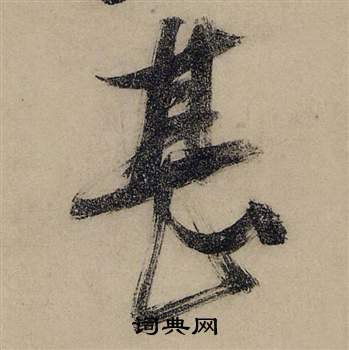 甚
词典网